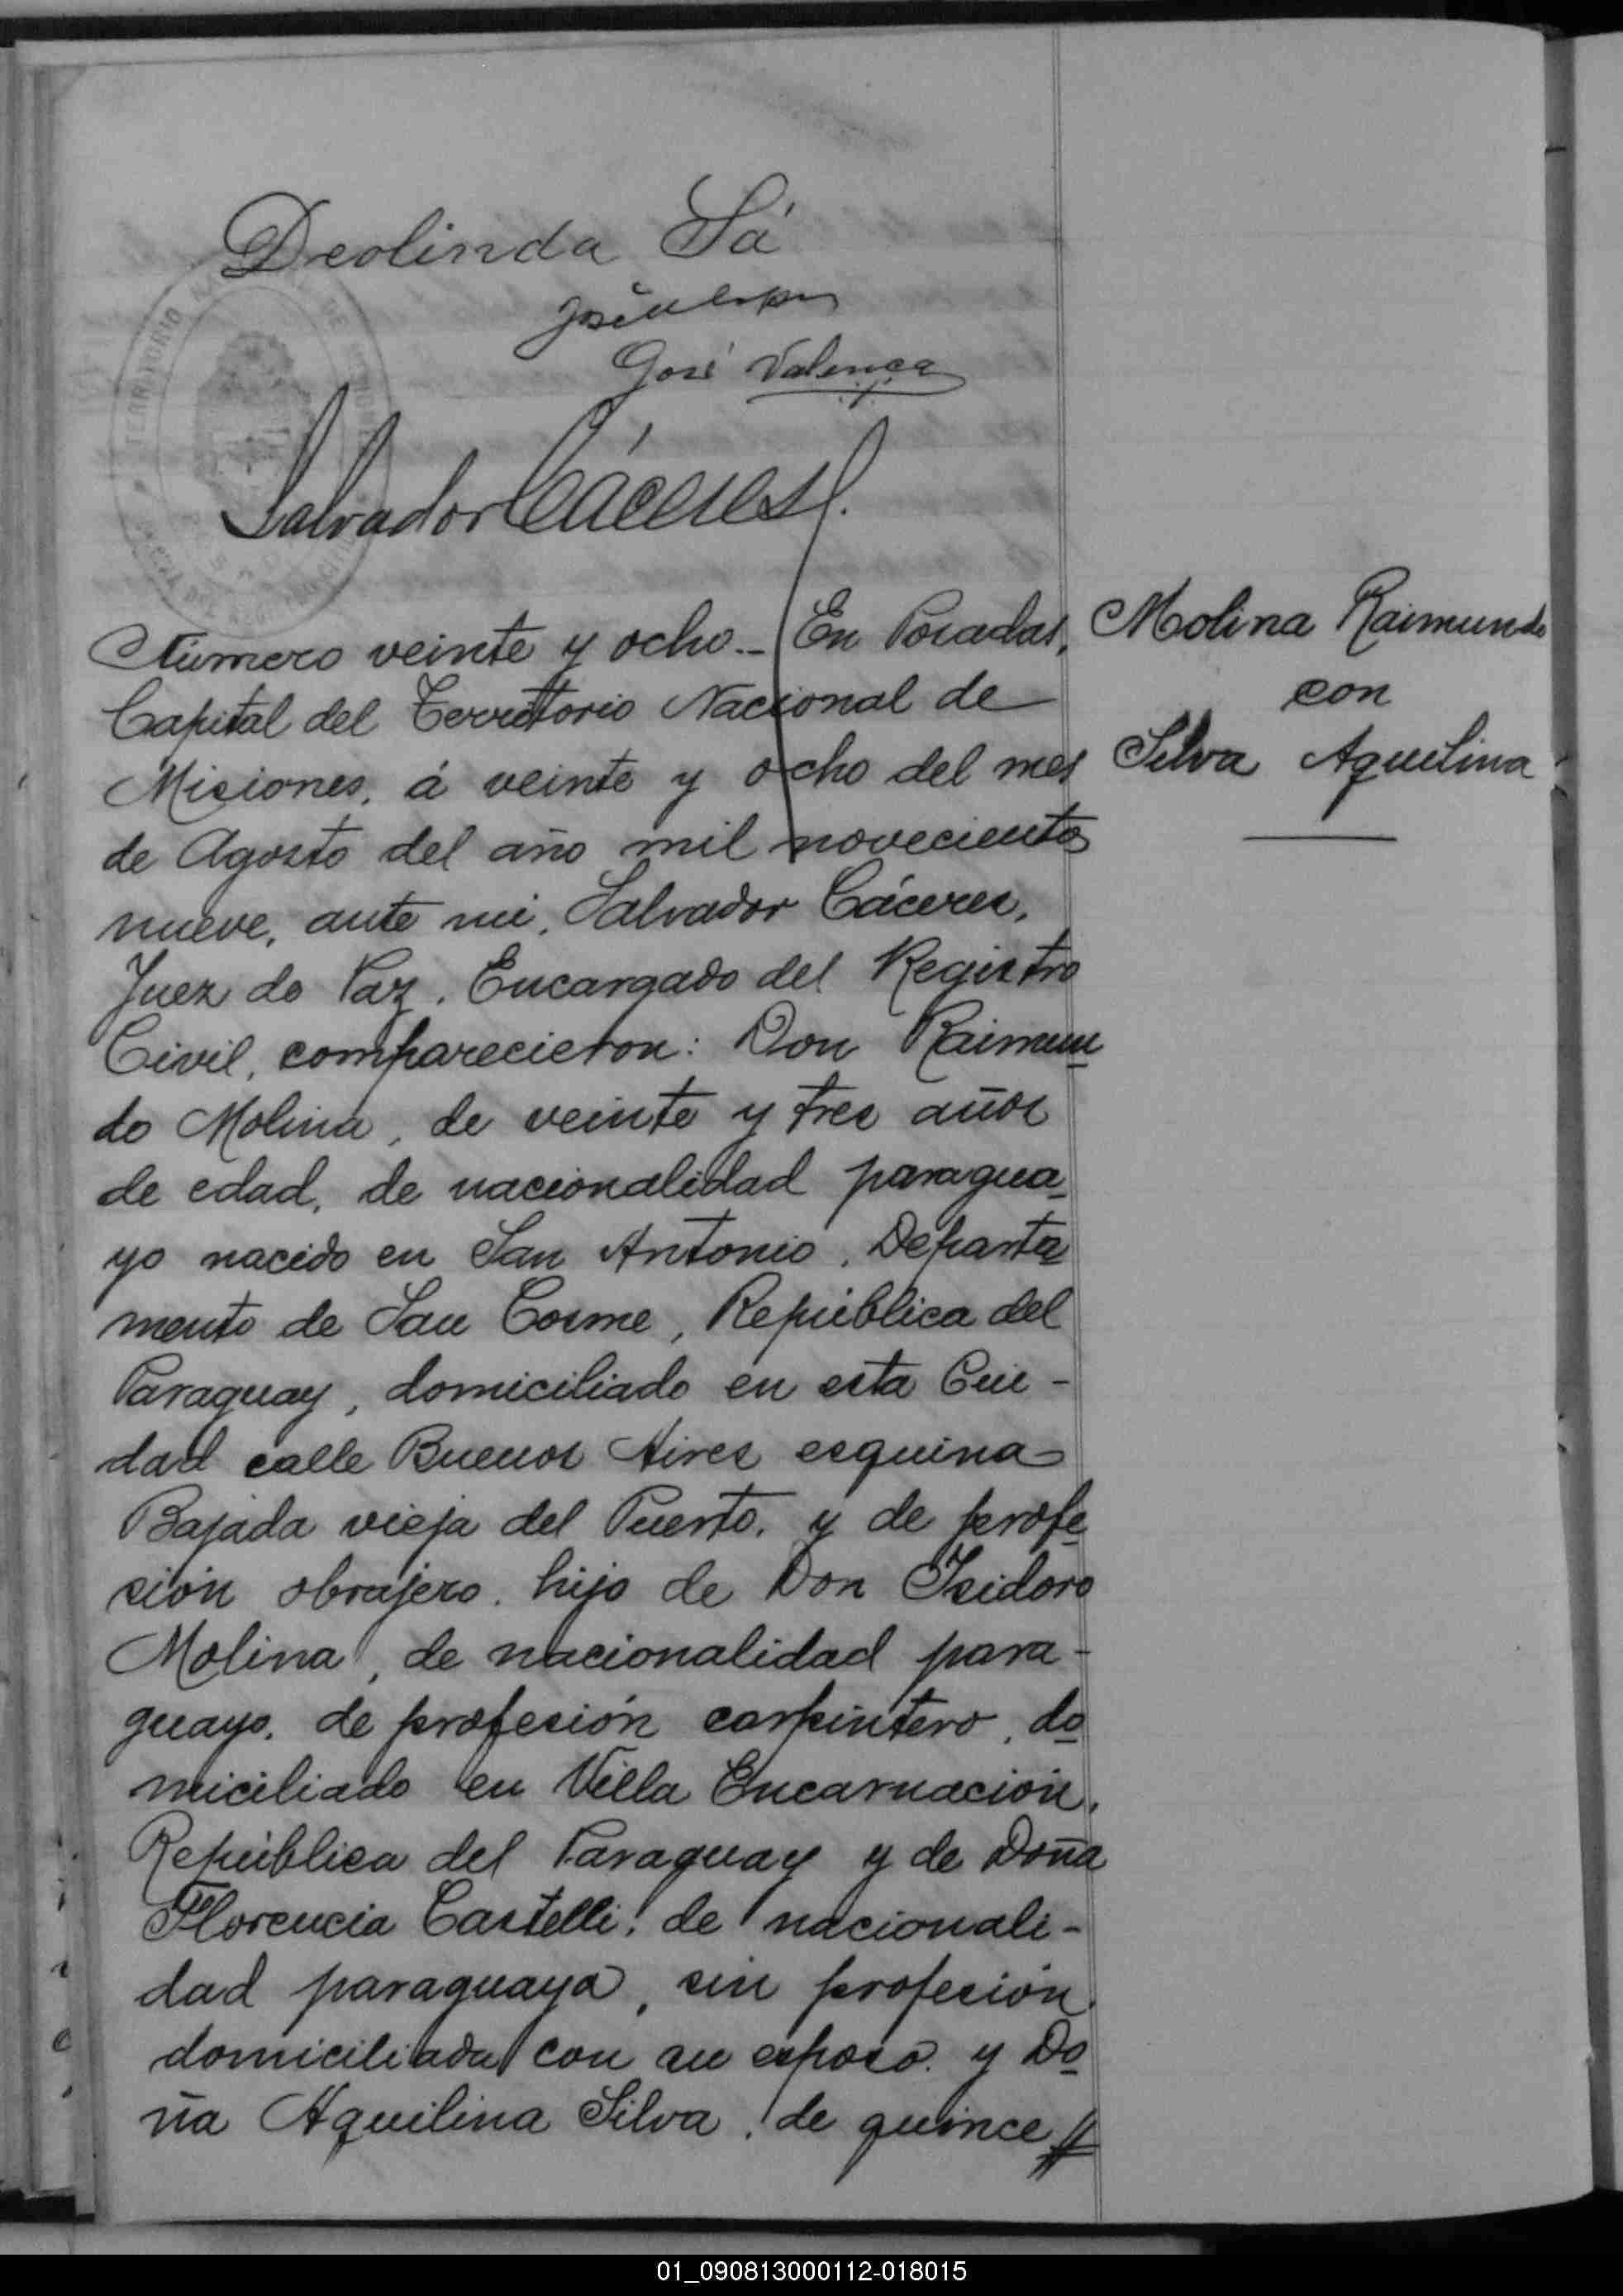 Deolinda Sá
José
José Valença
Salvador Cáceres
TERRITORIO
Número veinte y ocho.- En Posadas,
Capital del Territorio Nacional de
Misiones, á veinte y ocho del mes
de Agosto del año mil novecientos
nueve, ante mi, Salvador Cáceres,
Juez de Paz, Encargado del Registro
Civil, comparecieron: Don Raimun
do Molina, de veinte y tres años
de edad, de nacionalidad paragua
yo nacido en San Antonio, Departa
mento de San Cosme, República del
Paraguay, domiciliado en esta Ciu-
dad calle Buenos Aires esquina
Bajada vieja del Puerto, y de profe
sión obrajero, hijo de Don Isidoro
Molina, de nacionalidad para-
guayo, de profesión carpintero, do
miciliado en Villa Encarnación,
República del Paraguay y de Doña
Florencia Castelli, de nacionali-
dad paraguaya, sin profesión,
domiciliada con su esposo, y Do
ña Aquilina Silva, de quince
Molina Raimundo
con
Silva Aquilina
01_090813000112-018015